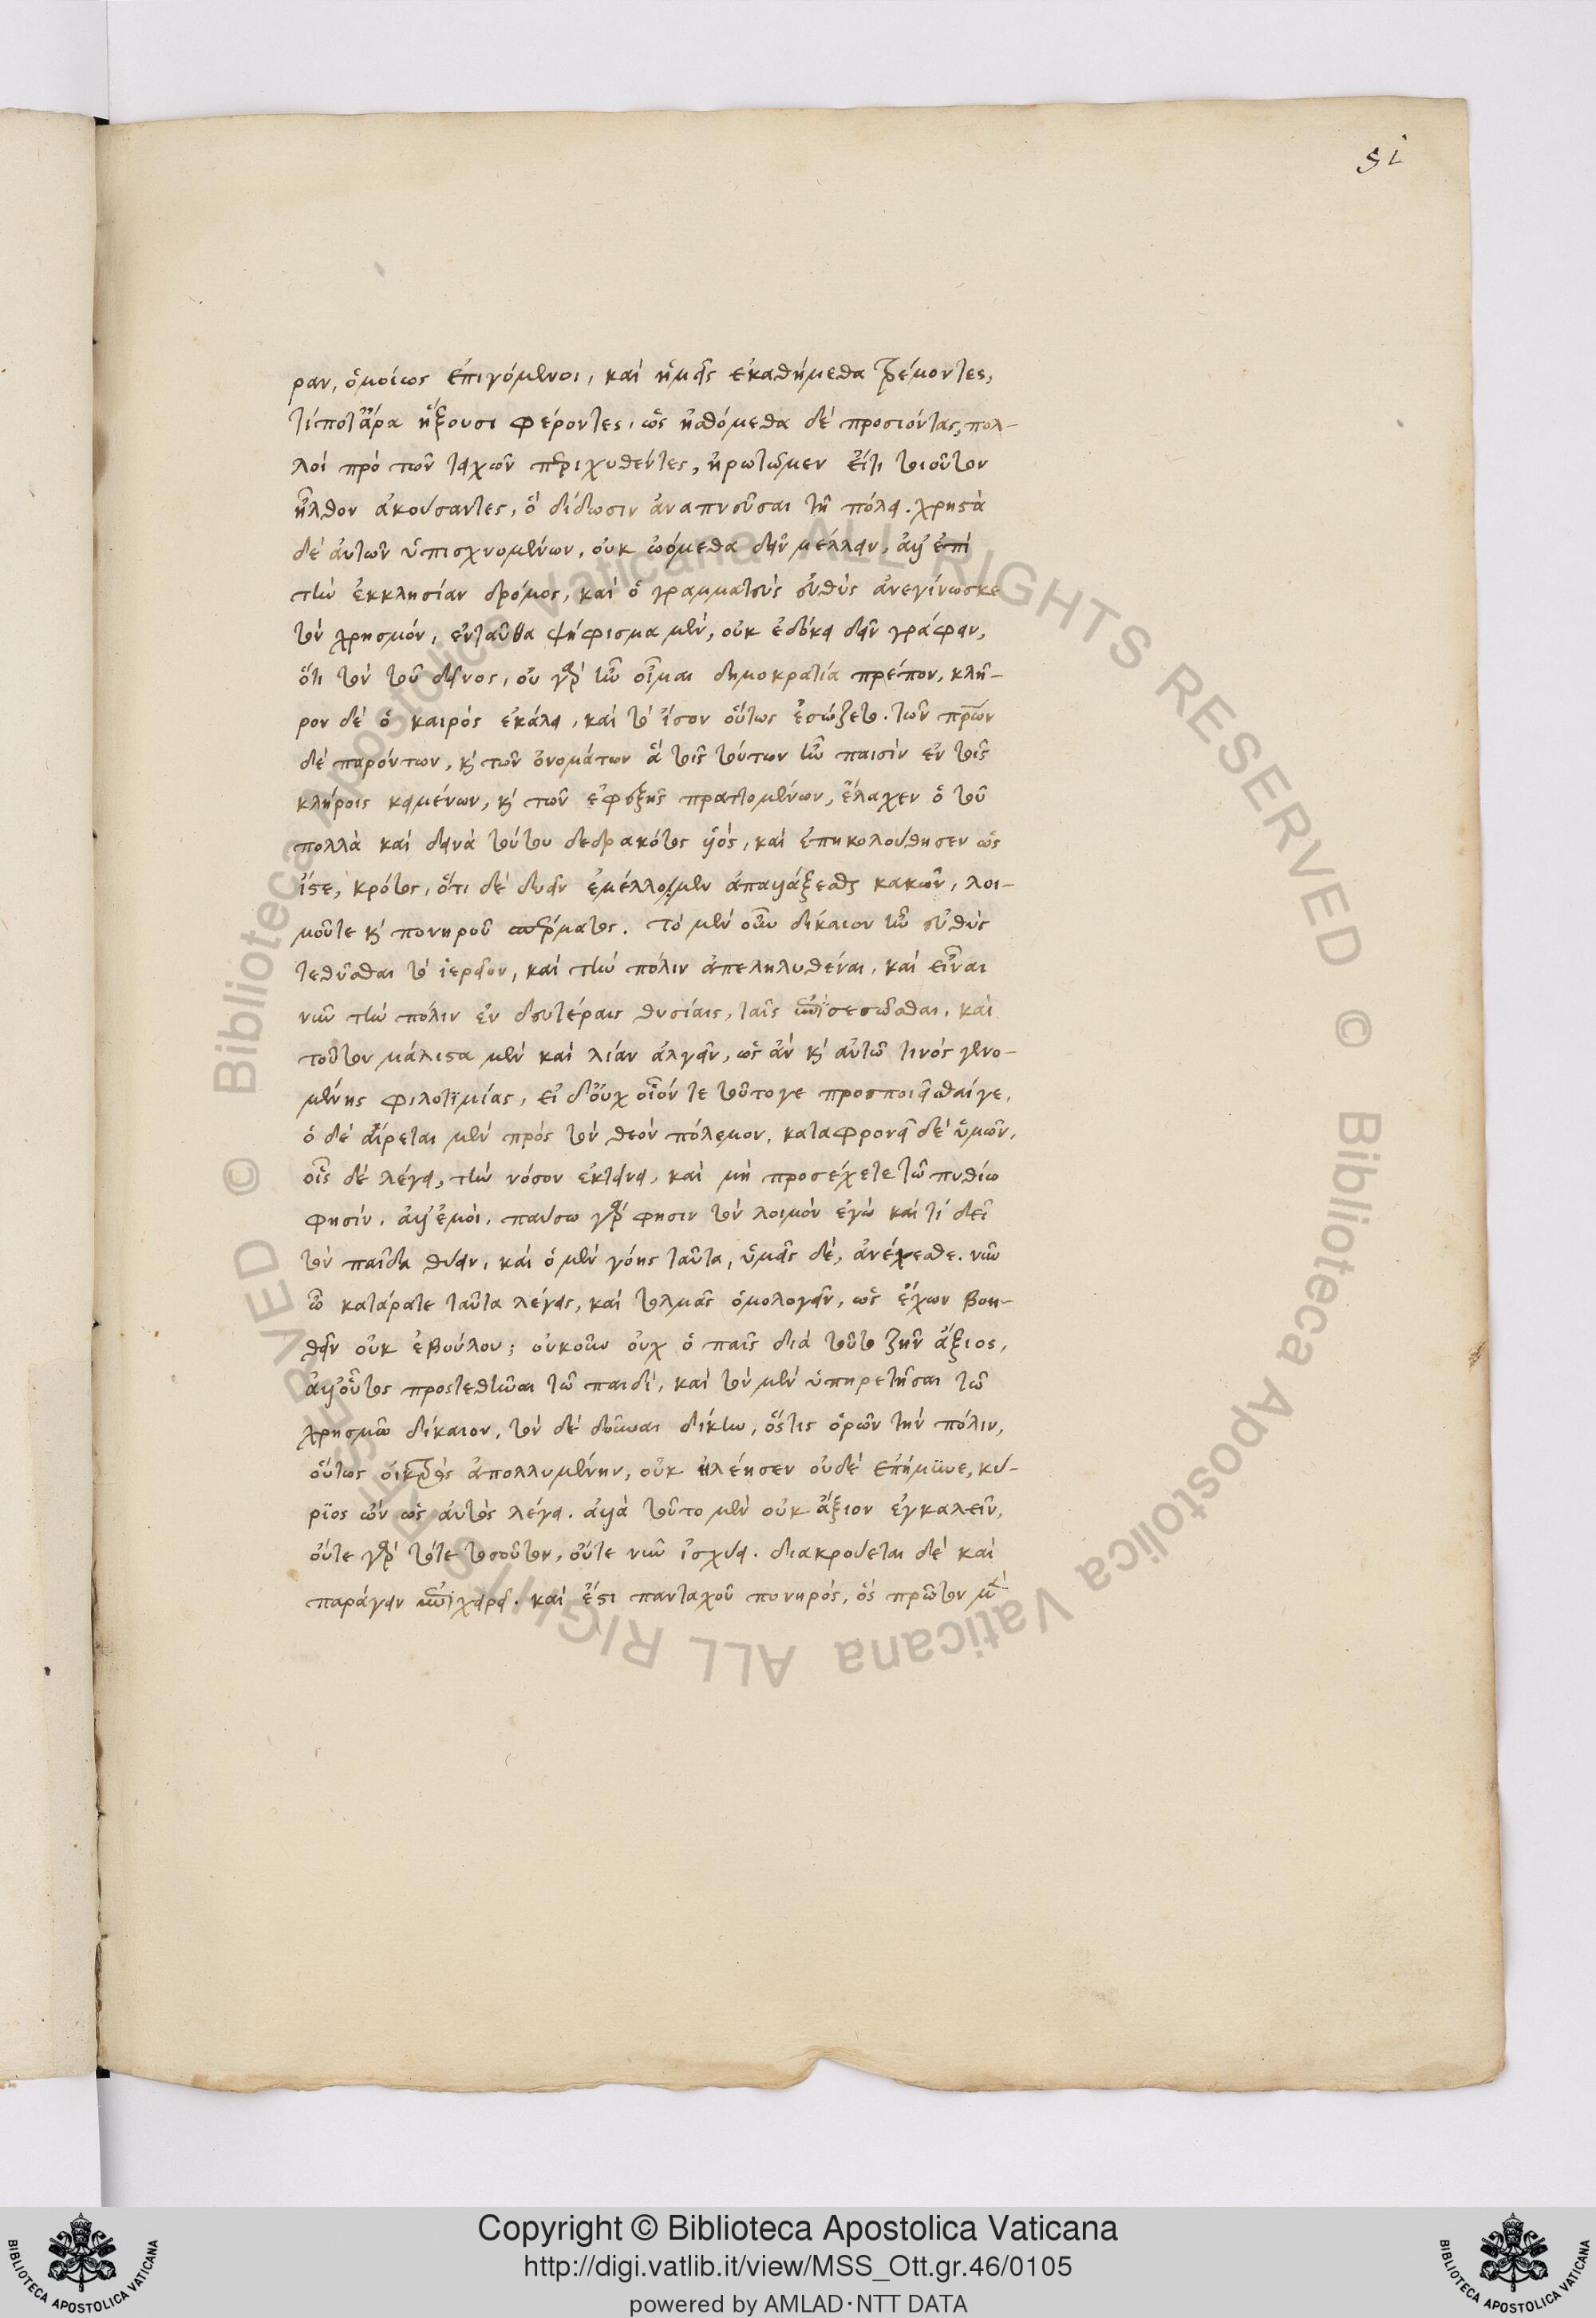 51
ραν, ὁμοίως ἐπιγόμενοι, καὶ ἡμεῖς ἐκαθήμεθα τρέμοντες,
τί ποτ' ἄρα ἥξουσι φέροντες, ὡς ᾐσθόμεθα δὲ προσιόντας, πολ-
λοὶ πρὸ τῶν τειχῶν περιχυθέντες, ἠρωτῶμεν εἴ τι τοιοῦτον
ἦλθον ἀκούσαντες, ὃ δίδωσιν ἀναπνεῦσαι τῇ πόλει. χρηστὰ
δὲ αὐτῶν ὑπισχνουμένων, οὐκ ᾠόμεθα δεῖν μέλλειν, ἀλλ' ἐπὶ
τὴν ἐκκλησίαν δρόμος, καὶ ὁ γραμματεὺς εὐθὺς ἀνεγίνωσκε
τὸν χρησμόν, ἐνταῦθα ψήφισμα μὲν, οὐκ ἐδόκει δεῖν γράφειν,
ὅτι τὸν τοῦ δεῖνος, οὐ γὰρ ἦν οἶμαι δημοκρατία πρέπον, κλῆ-
ρον δὲ ὁ καιρὸς ἐκάλει, καὶ τὸ ἴσον οὕτως ἐσώζετο. τῶν πατέρων
δὲ παρόντων, καὶ τῶν ὀνομάτων ἃ τοῖς τούτων ἦν παισὶν ἐν τοῖς
κλήροις κειμένων, καὶ τῶν ἐφεξῆς πραττομένων, ἔλαχεν ὁ τοῦ
πολλὰ καὶ δεινὰ τούτου δεδρακότος υἱός, καὶ ἐπηκολούθησεν ὡς
ἴστε, κρότος, ὅτι δὲ δυεῖν ἐμέλλομεν ἀπαλλάξεσθαι κακῶν, λοι-
μοῦ τε καὶ πονηροῦ σπέρματος. τὸ μὲν οὖν δίκαιον ἦν εὐθὺς
τεθῦσθαι τὸ ἱερεῖον, καὶ τὴν πόλιν ἀπεληλυθέναι, καὶ εἶναι
νῦν τὴν πόλιν ἐν δευτέραις θυσίαις, ταῖς ὑπὲρ τοῦ σεσῶσθαι, καὶ
τοῦτον μάλιστα μὲν καὶ λίαν ἀλγεῖν, ὡς ἂν καὶ αὐτῷ τινός γενο-
μένης φιλοτϊμίας, εἰ δ' οὐχ οἷόν τε τοῦτό γε προσποιεῖσθαί γε,
ὁ δὲ αἴρεται μὲν πρὸς τὸν θεὸν πόλεμον, καταφρονεῖ δὲ ὑμῶν,
οἷς δὲ λέγει, τὴν νόσον ἐκτείνει, καὶ μὴ προσέχετε τῷ πυθίῳ
φησίν, ἀλλ' ἐμοί, παύσω γάρ φησιν τὸν λοιμὸν ἐγὼ καὶ τί δεῖ
τὸν παῖδα θύειν, καὶ ὁ μὲν γόης ταῦτα, ὑμεῖς δὲ, ἀνέχεσθε. νῦν
ὦ κατάρατε ταῦτα λέγεις, καὶ τολμᾷς ὁμολογεῖν, ὡς ἔχων βοη-
θεῖν οὐκ ἐβούλου; οὐκοῦν οὐχ ὁ παῖς διὰ τοῦτο ζῆν ἄξιος,
ἀλλ' οὗτος προστεθῆναι τῷ παιδί, καὶ τὸν μὲν ὑπηρετῆσαι τῷ
χρησμῷ δίκαιον, τὸν δὲ δοῦναι δίκην, ὅστις ὁρῶν τὴν πόλιν,
οὕτως οἰκτρῶς ἀπολλυμένην, οὐκ ἠλέησεν οὐδὲ ἐπήμυνε, κύ-
ρϊος ὢν ὡς αὐτὸς λέγει. ἀλλὰ τοῦτο μὲν οὐκ ἄξιον ἐγκαλεῖν,
οὔτε γὰρ τότε τοσοῦτον, οὔτε νῦν ἰσχύει. διακρούεται δὲ καὶ
παράγειν ἐπιχειρεῖ. καὶ ἔστι πανταχοῦ πονηρός, ὃς πρῶτον μὲν
Copyright © Biblioteca Apostolica Vaticana
http://digi.vatlib.it/view/MSS_Ott.gr.46/0105
powered by AMLAD·NTT DATA